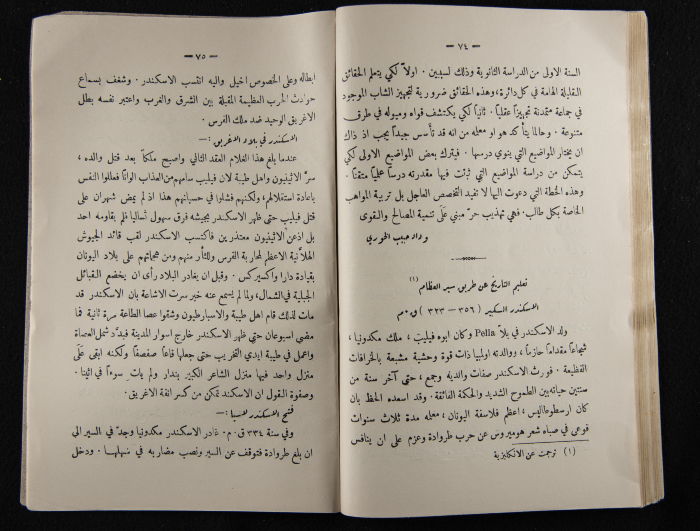 — ٧٤ —
السنة الاولى من الدراسة الثانوية وذلك لسببين . اولاً لكي يتعلم الحقائق
القليلة الهامة في كل دائرة، وهذه الحقائق ضرورية لتجهيز الشاب الموجود
في جماعة متمدنة تجهيزاً عقلياً . ثانياً لكي يكتشف قواه وميوله في طرق
متنوعة . وحالما يتأكد هو او معلمه من انه قد تأسس جيداً يجب اذ ذاك
ان يختار المواضيع التي ينوي درسها . فيترك بعض المواضيع الاولى لكي
يتمكن من دراسة المواضيع التي ثبتت فيها مقدرته درساً علمياً متقناً .
وهذه الخطة التي دعوت اليها لا تفيد التخصص العاجل بل تربية المواهب
الخاصة بكل طالب. فهي تهذيب حرّ مبني على تنمية المصالح والقوى
وداد حبيب الخوري
تعليم التاريخ عن طريق سير العظام (١)
الاسكندر الكبير (٣٥٦ - ٣٢٣) ق . م
ولد الاسكندر في بلاّ Pella وكان ابوه فيليب ، ملك مكدونيا ،
شجاعاً مقداماً حازماً ، ووالدته اولمبيا ذات قوة وحشية مشبعة بالخرافات
الفظيعة . فورث الاسكندر صفات والديه وجمع ، حتى آخر سنة من
سنتين حياته بين الطموح الشديد والحكمة الفائقة . وقد اسعده الحظ بان
كان ارسطوطاليس ، اعظم فلاسفة اليونان ، معلمه مدة ثلاث سنوات
فوعى في صباه شعر هوميروس عن حرب طروادة وعزم على ان ينافس
(١) ترجمت عن الانكليزية
— ٧٥ —
ابطاله وعلى الخصوص اخيل واليه انتسب الاسكندر . وشغف بسماع
حوادث الحرب العظيمة المقبلة بين الشرق والغرب واعتبر نفسه بطل
الاغريق الوحيد ضد ملك الفرس .
الاسكندر في بلاد الاغريق :—
عندما بلغ هذا الغلام العقد الثاني واصبح ملكاً بعد قتل والده ،
سرّ الاثينيون واهل طيبة لان فيليب سامهم من العذاب الواناً فعللوا النفس
باعادة استقلالهم، ولكنهم فشلوا في حسبانهم هذا اذ لم يمض شهران على
قتل فيليب حتى ظهر الاسكندر بجيشه فرق سهول تساليا فلم يقاومه احد
بل اذعن الاثينيون معتذرين فاكتسب الاسكندر لقب قائد الجيوش
الهلّانية الاعظم لمحاربة الفرس وللثأر منهم ومن هجماتهم على بلاد اليونان
بقيادة دارا واكسيركس . وقبل ان يغادر البلاد رأى ان يخضع القبائل
الجبلية في الشمال ، ولما لم يسمع عنه خبر سرت الاشاعة بان الاسكندر قد
مات لذلك قام اهل طيبة والاسبارطيون وشقوا عصا الطاعة مرة ثانية فما
مضى اسبوعان حتى ظهر الاسكندر خارج اسوار المدينة فبدّد شمل العصاة
واعمل في طيبة ايدي التخريب حتى جعلها قاعاً صفصفاً ولكنه ابقى على
منزل واحد فيها منزل الشاعر الكبير بندار ولم يأت سوءاً في اثينا .
وصفوة القول ان الاسكندر تمكن من كسر انفة الاغريق .
فتح الاسكندر لاسيا :—
وفي سنة ٣٣٤ ق . م . غادر الاسكندر مكدونيا وجدّ في السير الى
ان بلغ طروادة فتوقف عن السير ونصب مضاربه في سهلها . ودخل